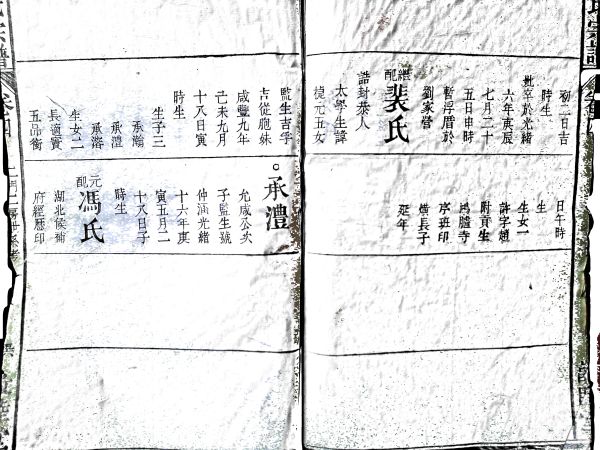 初二日吉
時生
批卒於光緒
六年庚辰
七月二十
五日申時
暫浮厝於
劉家營
繼配
裴氏
誥封恭人
太學生諱
捷元五女
監生吉孚
吉從胞妹
咸豐九年
己未九月
十八日寅
時生
生子三
承瀚
承澧
承溶
生女二
長適竇
五品銜
日午時
生
生女一
許字趙
附貢生
鴻臚寺
序班印
橫長子
延年
承澧
允成公次
子監生號
仲涵光緒
十六年庚
寅五月二
十八日子
時生
元配
馮氏
湖北候補
府經歷印